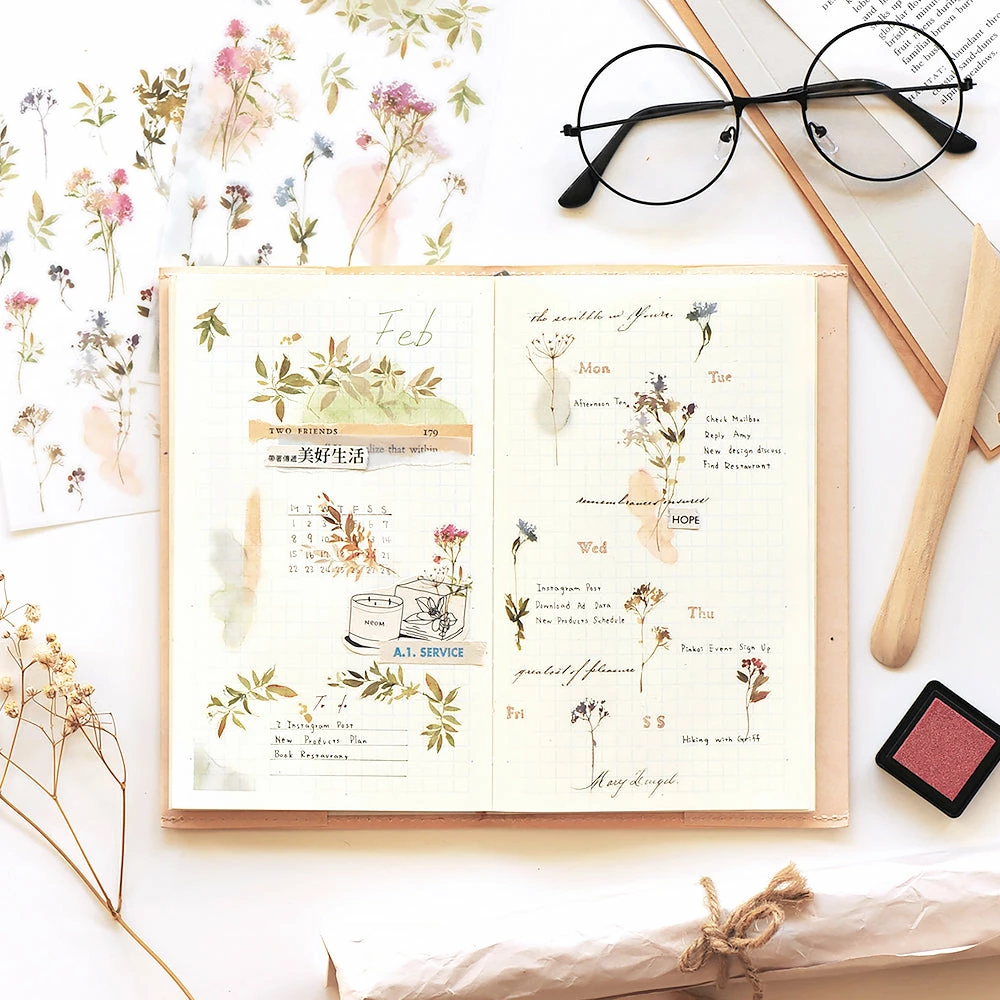 Feb
TWO FRIENDS 179
alize that within
帶著傳遞美好生活
M T W T F S S
1 2 3 4 5 6 7
8 9 10 11 12 13 14
15 16 17 18 19 20 21
22 23 24 25 26 27 28
NEOM
A.1. SERVICE
To do
2 Instagram Post
New Products Plan
Book Restaurant
the scribble in Yours.
Mon
Afternoon Tea
Tue
Check Mailbox
Reply Amy
New design discuss.
Find Restaurant
remembrances
HOPE
Wed
Instagram Post
Download Ad Data
New Products Schedule
Thu
Pinkoi Event Sign Up
greatest of pleasure
Fri
S S
Hiking with Griff
Mary